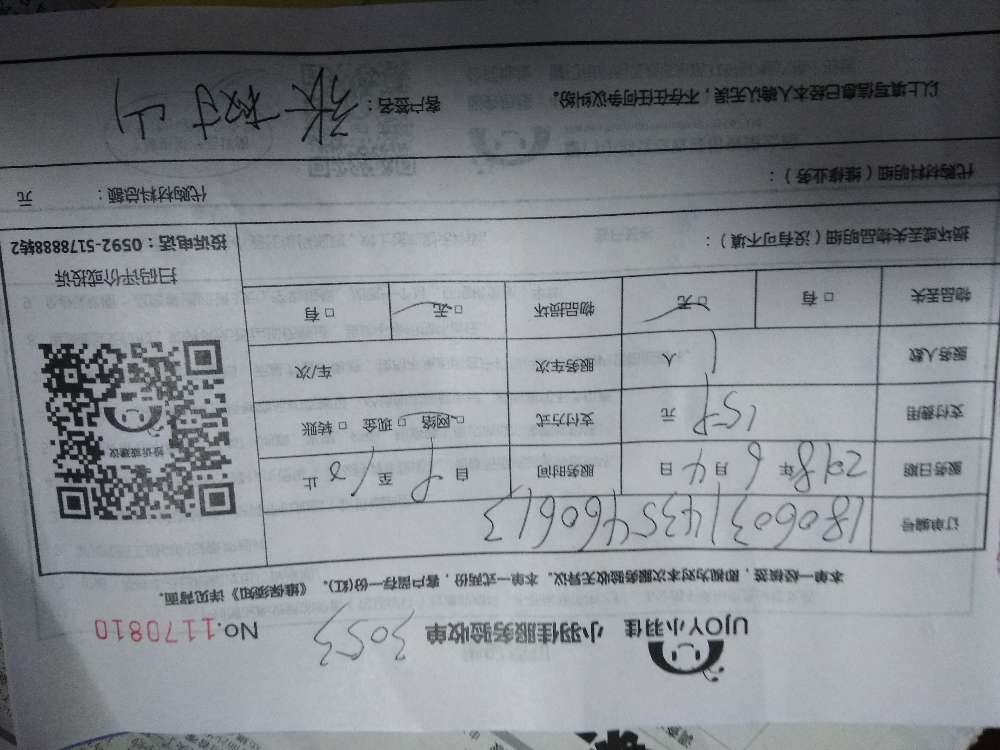 UJOY小羽佳 小羽佳服务验收单 3053 No.1170810
本单一经核签，即视为对本次服务验收无异议。本单一式两份，客户留存一份(红)。《维保须知》详见背面。
订单编号 1806031435460613
服务日期 2018年6月4日 服务时间 自 8 至 12 止
支付费用 159 元 支付方式 □网络 □现金 □转账
服务人数 1 人 服务车次 车/次
物品丢失 □有 □无 物品损坏 □无 □有
投诉或建议
扫码评价或投诉
投诉电话：0592-5178888转2
损坏或丢失物品明细（没有可不填）：
代购材料明细（维修业务）： 代购材料总额： 元
以上填写信息已经本人确认无误，不存在任何争议纠纷。 客户签名：